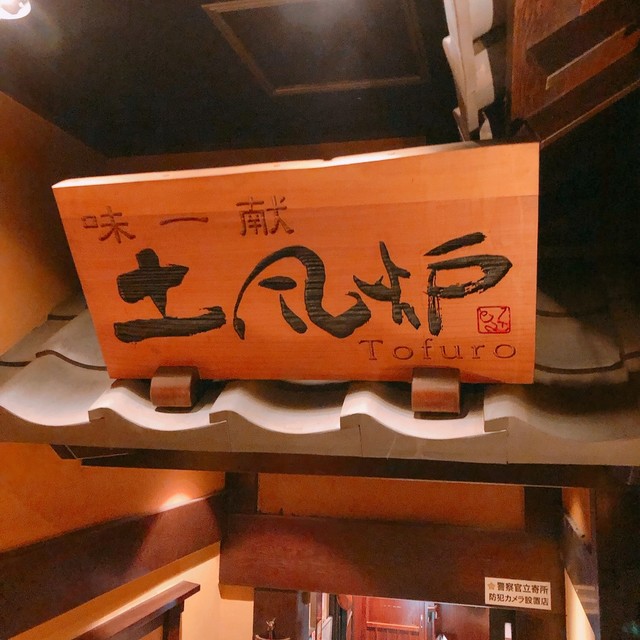 味一献
土風炉
Tofuro
警察官立寄所
防犯カメラ設置店